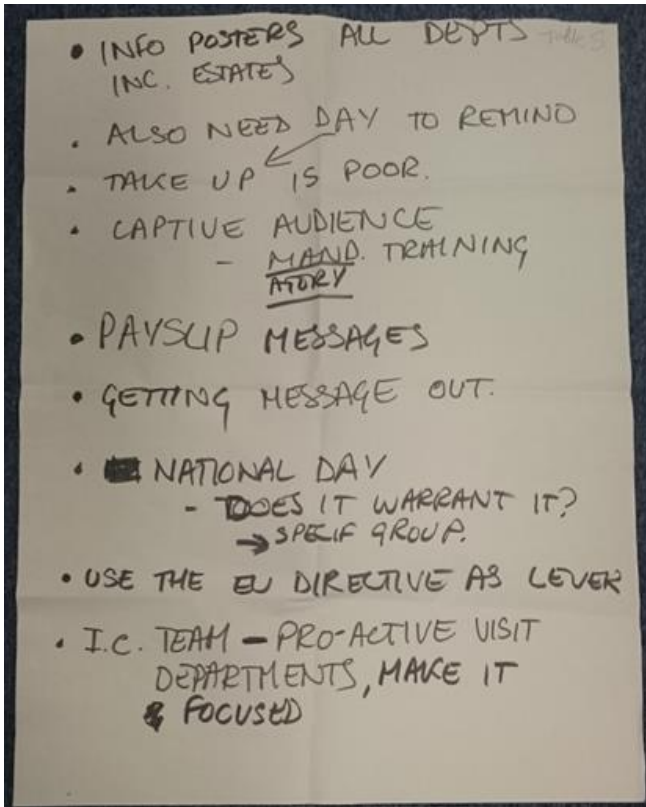 • INFO POSTERS ALL DEPTS Table 8
INC. ESTATES
• ALSO NEED DAY TO REMIND
• TAKE UP IS POOR.
• CAPTIVE AUDIENCE
- MAND. TRAINING
ATORY
• PAYSLIP MESSAGES
• GETTING MESSAGE OUT.
• NATIONAL DAY
- DOES IT WARRANT IT?
→ SPECIF GROUP.
• USE THE EU DIRECTIVE AS LEVER
• I.C. TEAM - PRO-ACTIVE VISIT
DEPARTMENTS, MAKE IT
FOCUSED